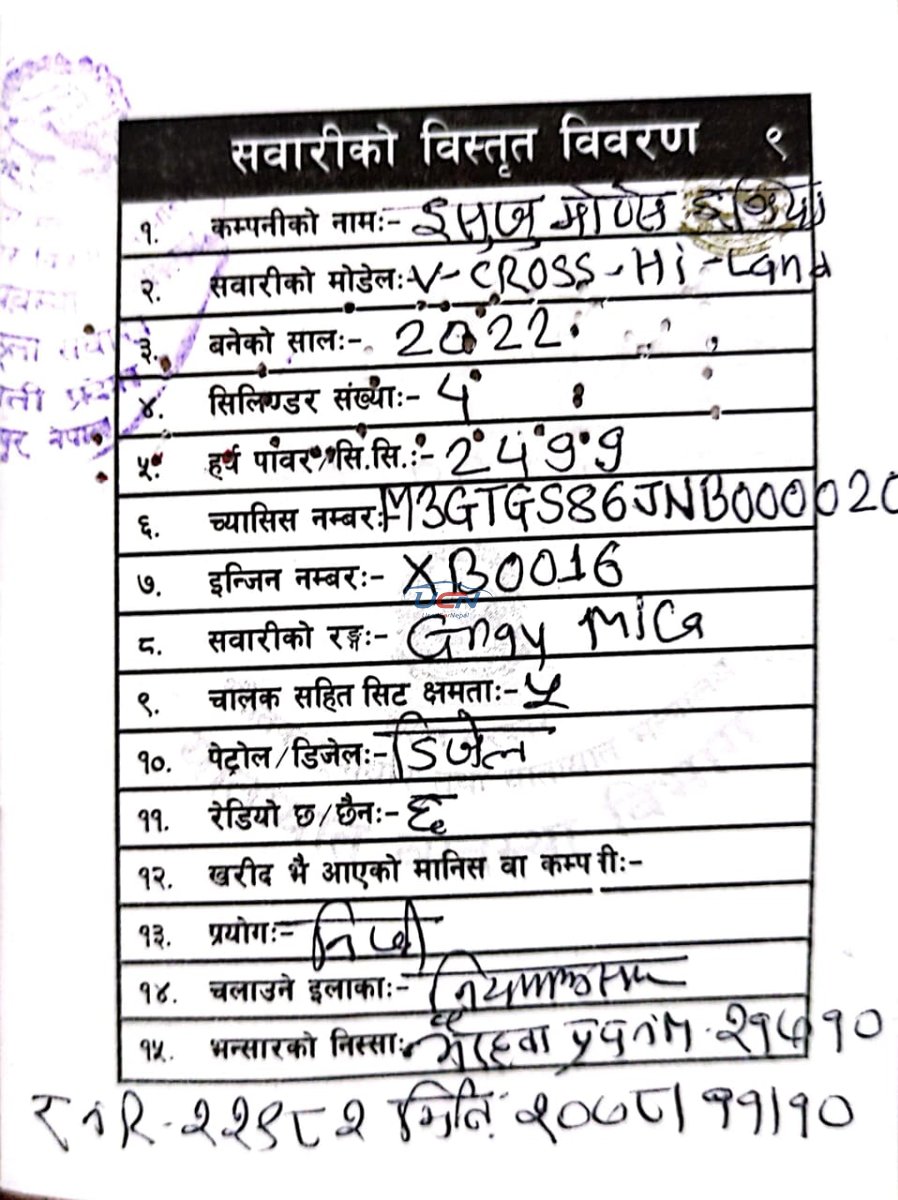 सवारीको विस्तृत विवरण ९
१. कम्पनीको नामः- इसुजु मोटर्स इन्डिया
२. सवारीको मोडेलः- V-CROSS-Hi-Land
३. बनेको सालः- 2022
४. सिलिण्डर संख्याः- 4
५. हर्ष पावर/सि.सि.:- 2499
६. च्यासिस नम्बरः- M3GTGS86JNB000020
७. इन्जिन नम्बरः- XB0016
UCN
८. सवारीको रङ्गः- Gray MiCa
९. चालक सहित सिट क्षमताः- ५
१०. पेट्रोल/डिजेलः- डिजेल
११. रेडियो छ/छैनः- छ
१२. खरीद भै आएको मानिस वा कम्परीः-
१३. प्रयोगः- निजी
१४. चलाउने इलाकाः- नियमानुसार
१५. भन्सारको निस्साः- भैरहवा प्र.प.नं.M. २१५१०
२२९८२ मिति: २०७८/११/१०